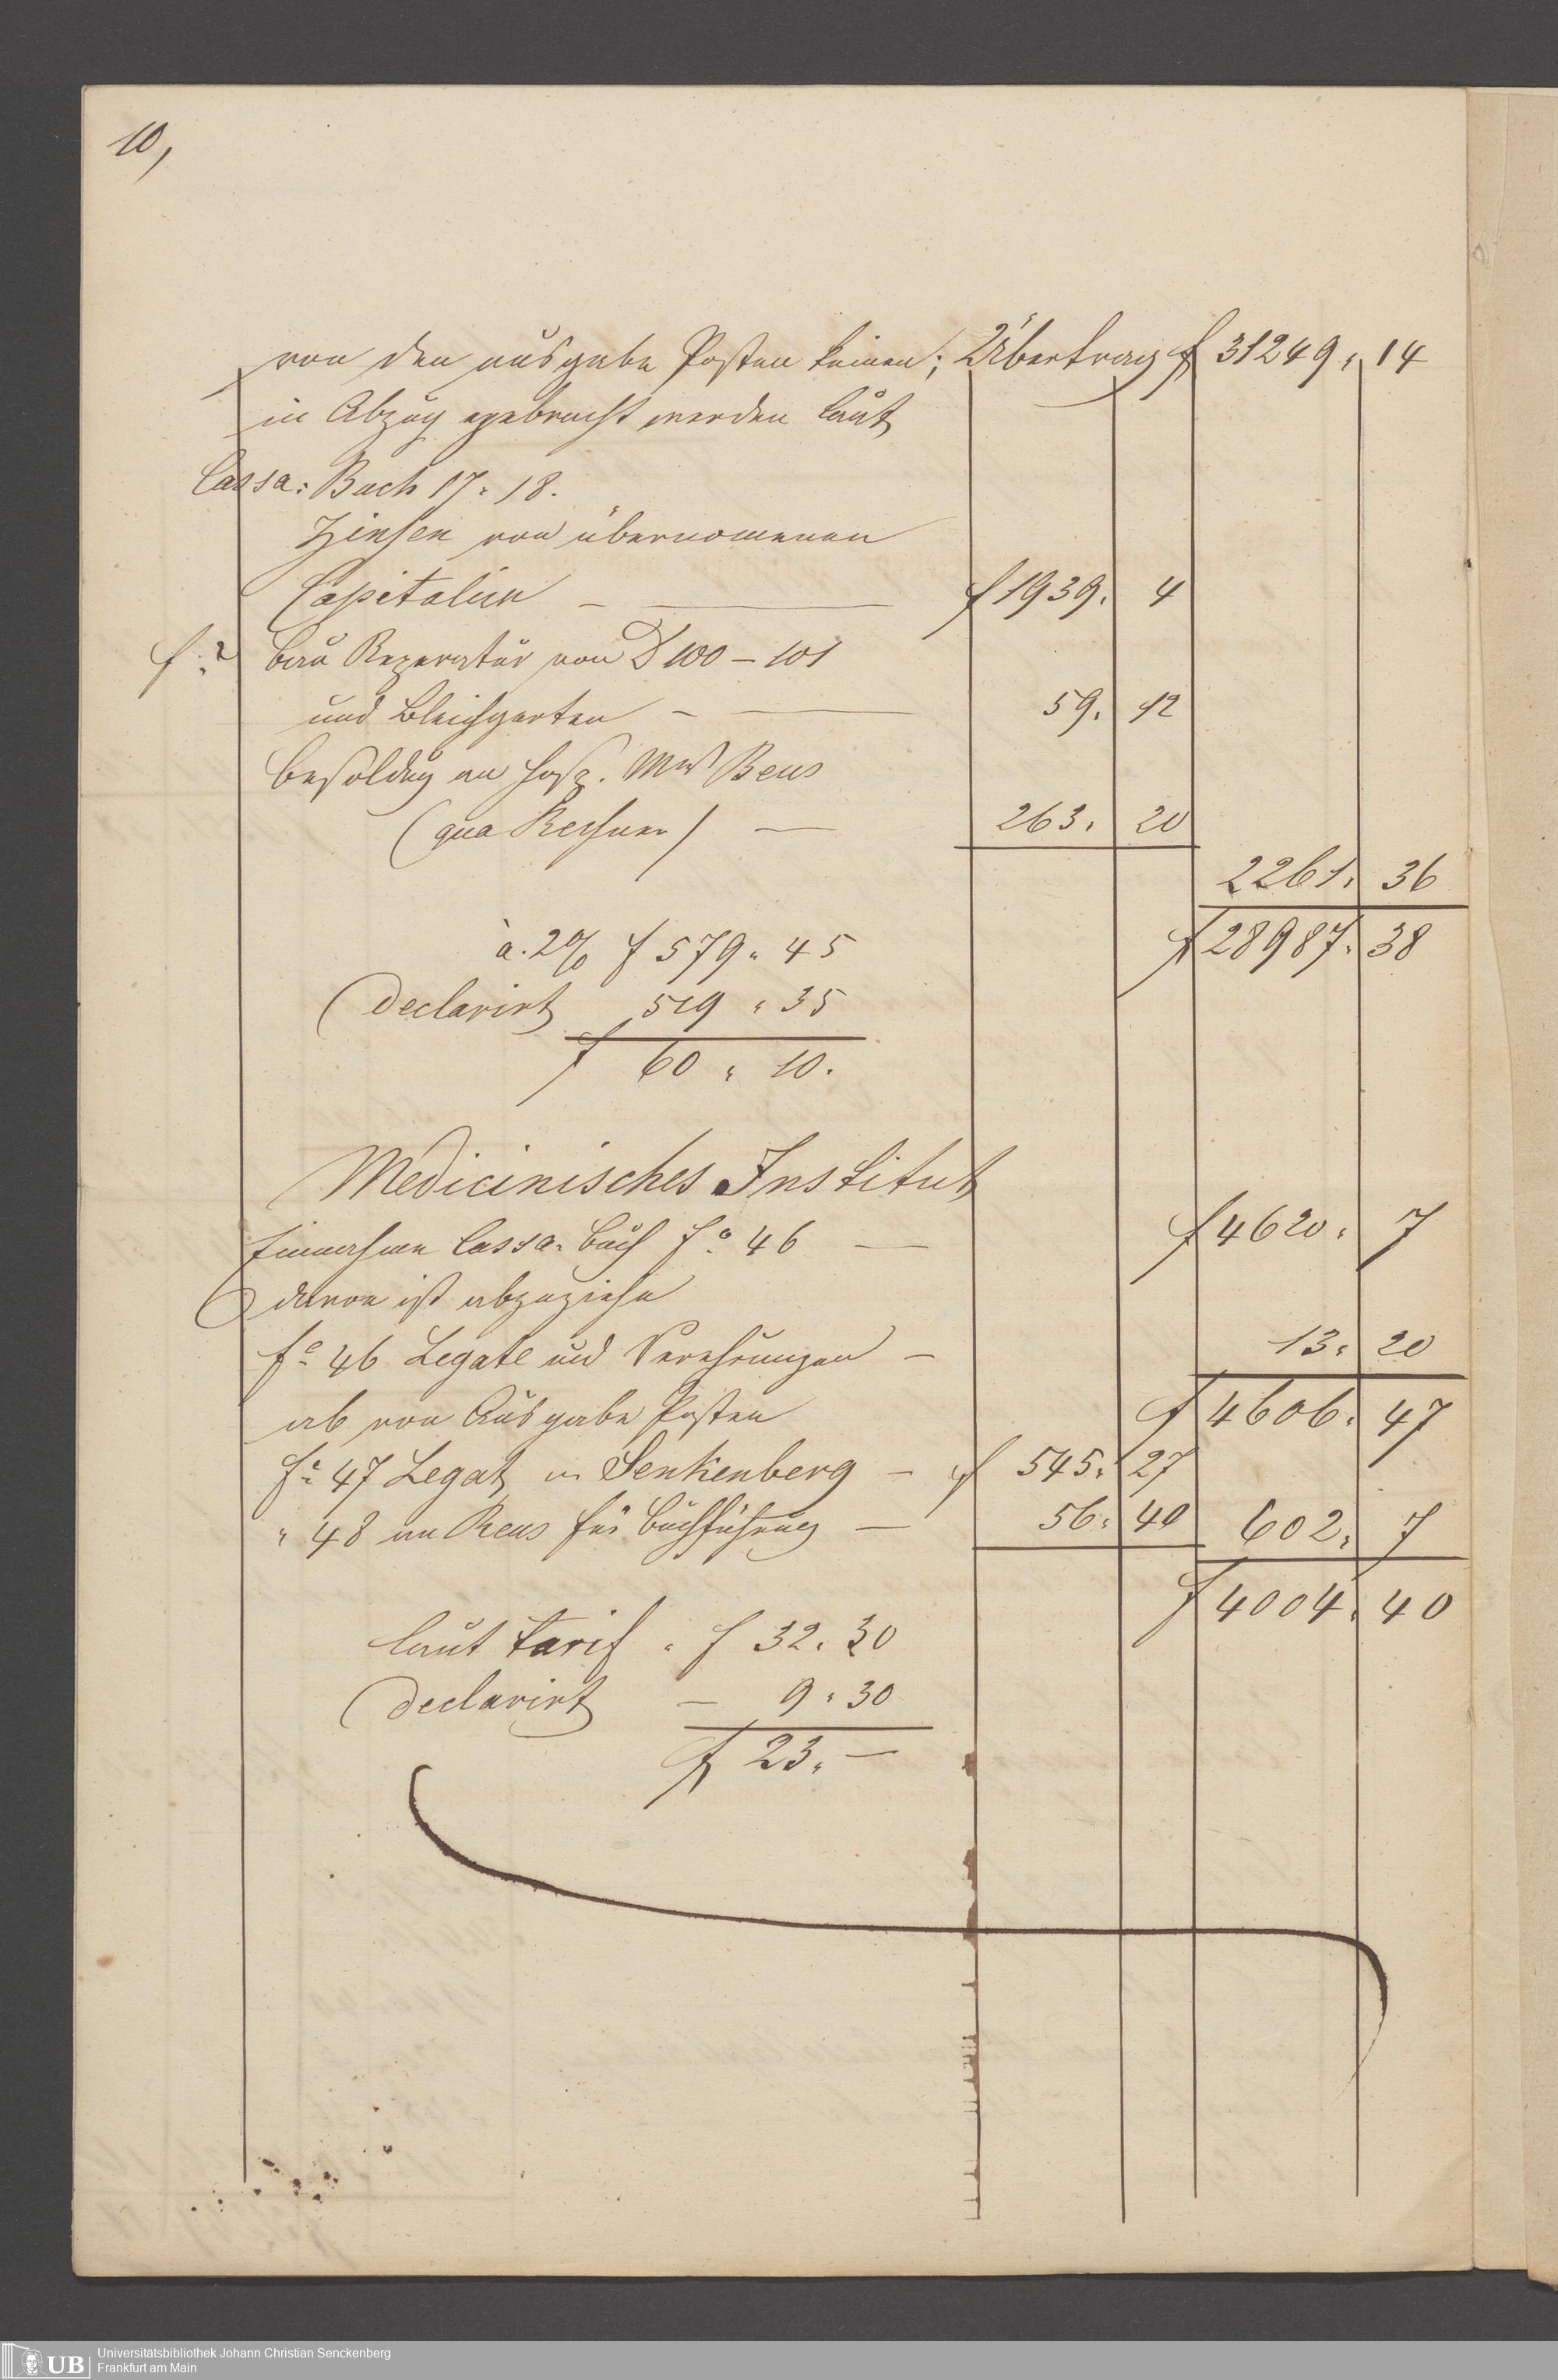 10,
von den ausgabe Posten keinen; Übertrag f 31249. 14
in Abzug gebracht werden laut
Cassa: Buch 17. 18.
Zinsen von übernomenen
Capitalien — f 1939. 4
f: 2 bau Reparatur von D 100 – 101
und Bleichgarten — 59. 12
Besoldug an Hosp. Mstr Beus
(qua Rechner) — 263. 20
2261. 36
à. 2% f 579. 45 f 28987. 38
Declarirt 519. 35
f 60. 10.
Medicinisches Institut
Einnahmen Cassa. buch fo. 46 — f 4620. 7
davon ist abzuziehn
fo. 46 Legate und Verehrungen — 13. 20
ab von Ausgabe Posten f 4606. 47
fo. 47 Legat v Senkenberg — f 545. 27
" 48 an Reus für buchführung — 56. 40 602. 7
f 4004. 40
laut tarif . f 32. 30
Declarirt — 9. 30
f 23. —
UB Universitätsbibliothek Johann Christian Senckenberg
Frankfurt am Main